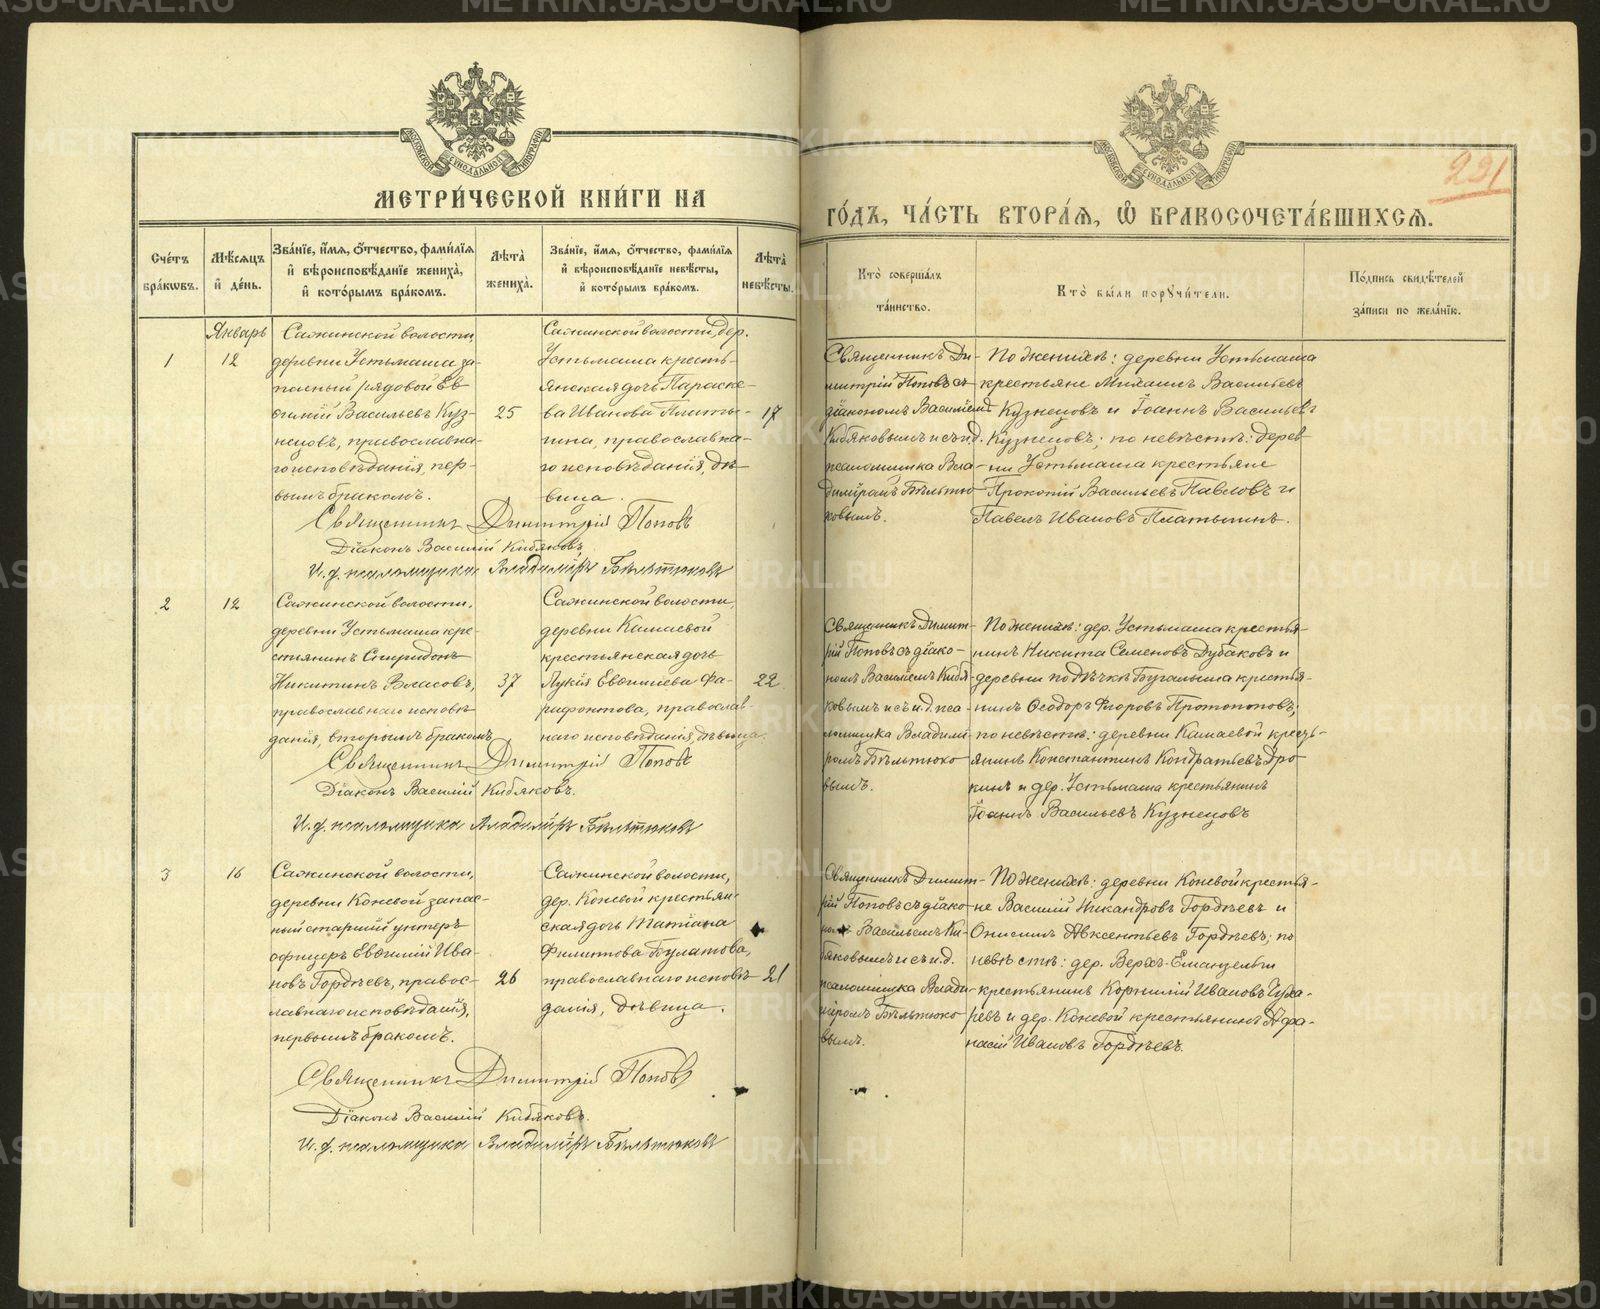 МЕТРИ́ЧЕСКОЙ КНИ́ГИ НА
ГО́ДЪ, ЧА́СТЬ ВТОРА́Ѧ, Ѽ БРАКОСОЧЕТА́ВШИХСѦ.
221
Сче́тъ бра́кѡвъ.
Мѣ́сѧцъ и҆ де́нь.
Зва́нїе, и҆́мѧ, ѻ҆́тчество, фами́лїѧ и҆ вѣроисповѣ́данїе жениха̀, и҆ кото́рымъ бра́комъ.
Лѣ́та жениха̀.
Зва́нїе, и҆́мѧ, ѻ҆́тчество, фами́лїѧ и҆ вѣроисповѣ́данїе невѣ́сты, и҆ кото́рымъ бра́комъ.
Лѣ́та невѣ́сты.
Кто̀ соверша́лъ та́инство.
Кто̀ бы́ли порꙋчи́тели.
По́дпись свидѣ́телей за́писи по жела́нїю.
Январь
1
12
Сажинской волости,
деревни Устьмаша за-
пасный рядовой Ев-
ѳимій Васильевъ Куз-
нецовъ, православна-
го исповѣданія, пер-
вымъ бракомъ.
25
Сажинской волости, дер.
Устьмаша кресть-
янская дочь Параске-
ва Иванова Платы-
гина, православна-
го исповѣданія, дѣ-
вица.
17
Священникъ Ди-
митрій Поповъ съ
діакономъ Василіемъ
Кибяковымъ и съ и.д.
псаломщика Вла-
димиромъ Бѣльтю-
ковымъ.
По женихѣ: деревни Устьмаша
крестьяне Михаилъ Васильевъ
Кузнецовъ и Іоаннъ Васильевъ
Кузнецовъ; по невѣстѣ: дерев-
ни Устьмаша крестьяне
Прокопій Васильевъ Павловъ и
Павелъ Ивановъ Платыгинъ.
Священникъ Димитрій Поповъ
Діаконъ Василій Кибяковъ.
И. д. псаломщика Владиміръ Бѣльтюковъ
2
12
Сажинской волости,
деревни Устьмаша кре-
стьянинъ Спиридонъ
Никитинъ Власовъ,
православнаго исповѣ-
данія, вторымъ бракомъ.
37
Сажинской волости,
деревни Камаевой
крестьянская дочь
Лукія Евѳиміева Фа-
рафонтова, православ-
наго исповѣданія, дѣвица.
22
Священникъ Димит-
рій Поповъ съ діако-
номъ Василіемъ Кибя-
ковымъ и съ и.д. пса-
ломщика Владими-
ромъ Бѣльтюко-
вымъ.
По женихѣ: дер. Устьмаша крестья-
нинъ Никита Семеновъ Дубаковъ и
деревни
крестья-
нинъ Ѳеодоръ Флоровъ Протопоповъ;
по невѣстѣ: деревни Камаевой кресть-
янинъ Константинъ Кондратьевъ Дро-
кинъ и дер. Устьмаша крестьянинъ
Іоаннъ Васильевъ Кузнецовъ
Священникъ Димитрій Поповъ
Діаконъ Василій Кибяковъ.
И. д. псаломщика Владиміръ Бѣльтюковъ
3
16
Сажинской волости,
деревни Коневой запас-
ный старшій унтеръ
офицеръ Евѳимій Ива-
новъ Гордѣевъ, правос-
лавнаго исповѣданія,
первымъ бракомъ.
26
Сажинской волости,
дер. Коневой крестьян-
ская дочь Татіана
Филиппова Булатова,
православнаго исповѣ-
данія, дѣвица.
21
Священникъ Димит-
рій Поповъ съ діако-
номъ Васильемъ Ки-
бяковымъ и съ и.д.
псаломщика Влади-
міромъ Бѣльтюко-
вымъ.
По женихѣ: деревни Коневой крестья-
не Василій Никандровъ Гордѣевъ и
Онисимъ Авксентьевъ Гордѣевъ; по
невѣстѣ: дер. Верхъ-Еманзельги
крестьянинъ Корнилій Ивановъ Чуха-
ревъ и дер. Коневой крестьянинъ Афа-
насій Ивановъ Гордѣевъ.
Священникъ Димитрій Поповъ
Діаконъ Василій Кибяковъ.
И. д. псаломщика Владиміръ Бѣльтюковъ
METRIKI.GASO-URAL.RU